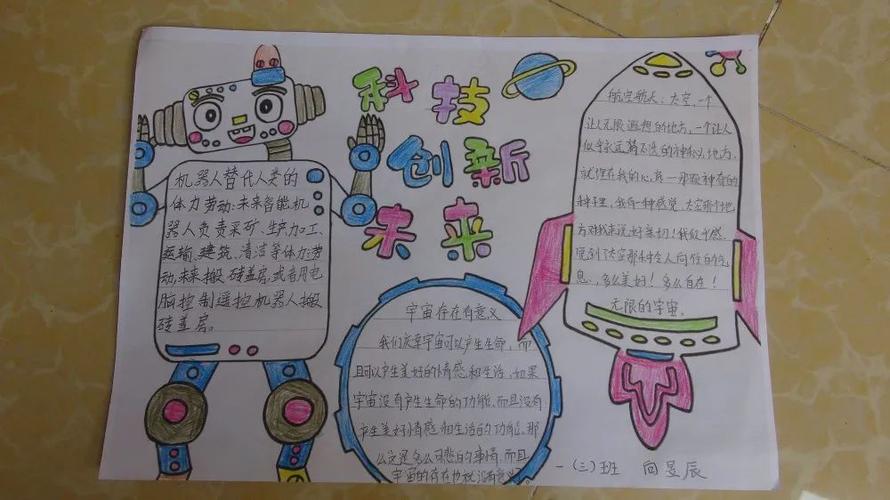 科技
创新
未来
机器人替代人类的
体力劳动:未来智能机
器人负责采矿、生产加工、
运输、建筑、清洁等体力劳
动,未来搬砖盖房,或者用电
脑控制遥控机器人搬
砖盖房。
宇宙存在有意义
我们庆幸宇宙可以产生生命,而
且可以产生美好的情感和生活,如果
宇宙没有产生生命的功能,而且没有
产生美好情感和生活的功能,那
么这是多么可悲的事情,而且
宇宙的存在也就没有意义
航空航天:太空,一个
让人无限遐想的地方,一个让人
似乎永远猜不透的神秘地方,
就埋在我的心底一那颗神奇的
种子里,我有一种感觉,太空那个地
方对我来说好亲切!我似乎感
觉到了太空那种令人向往的气
息,多么美妙!多么自在!
无限的宇宙。
一(三)班 向昱辰